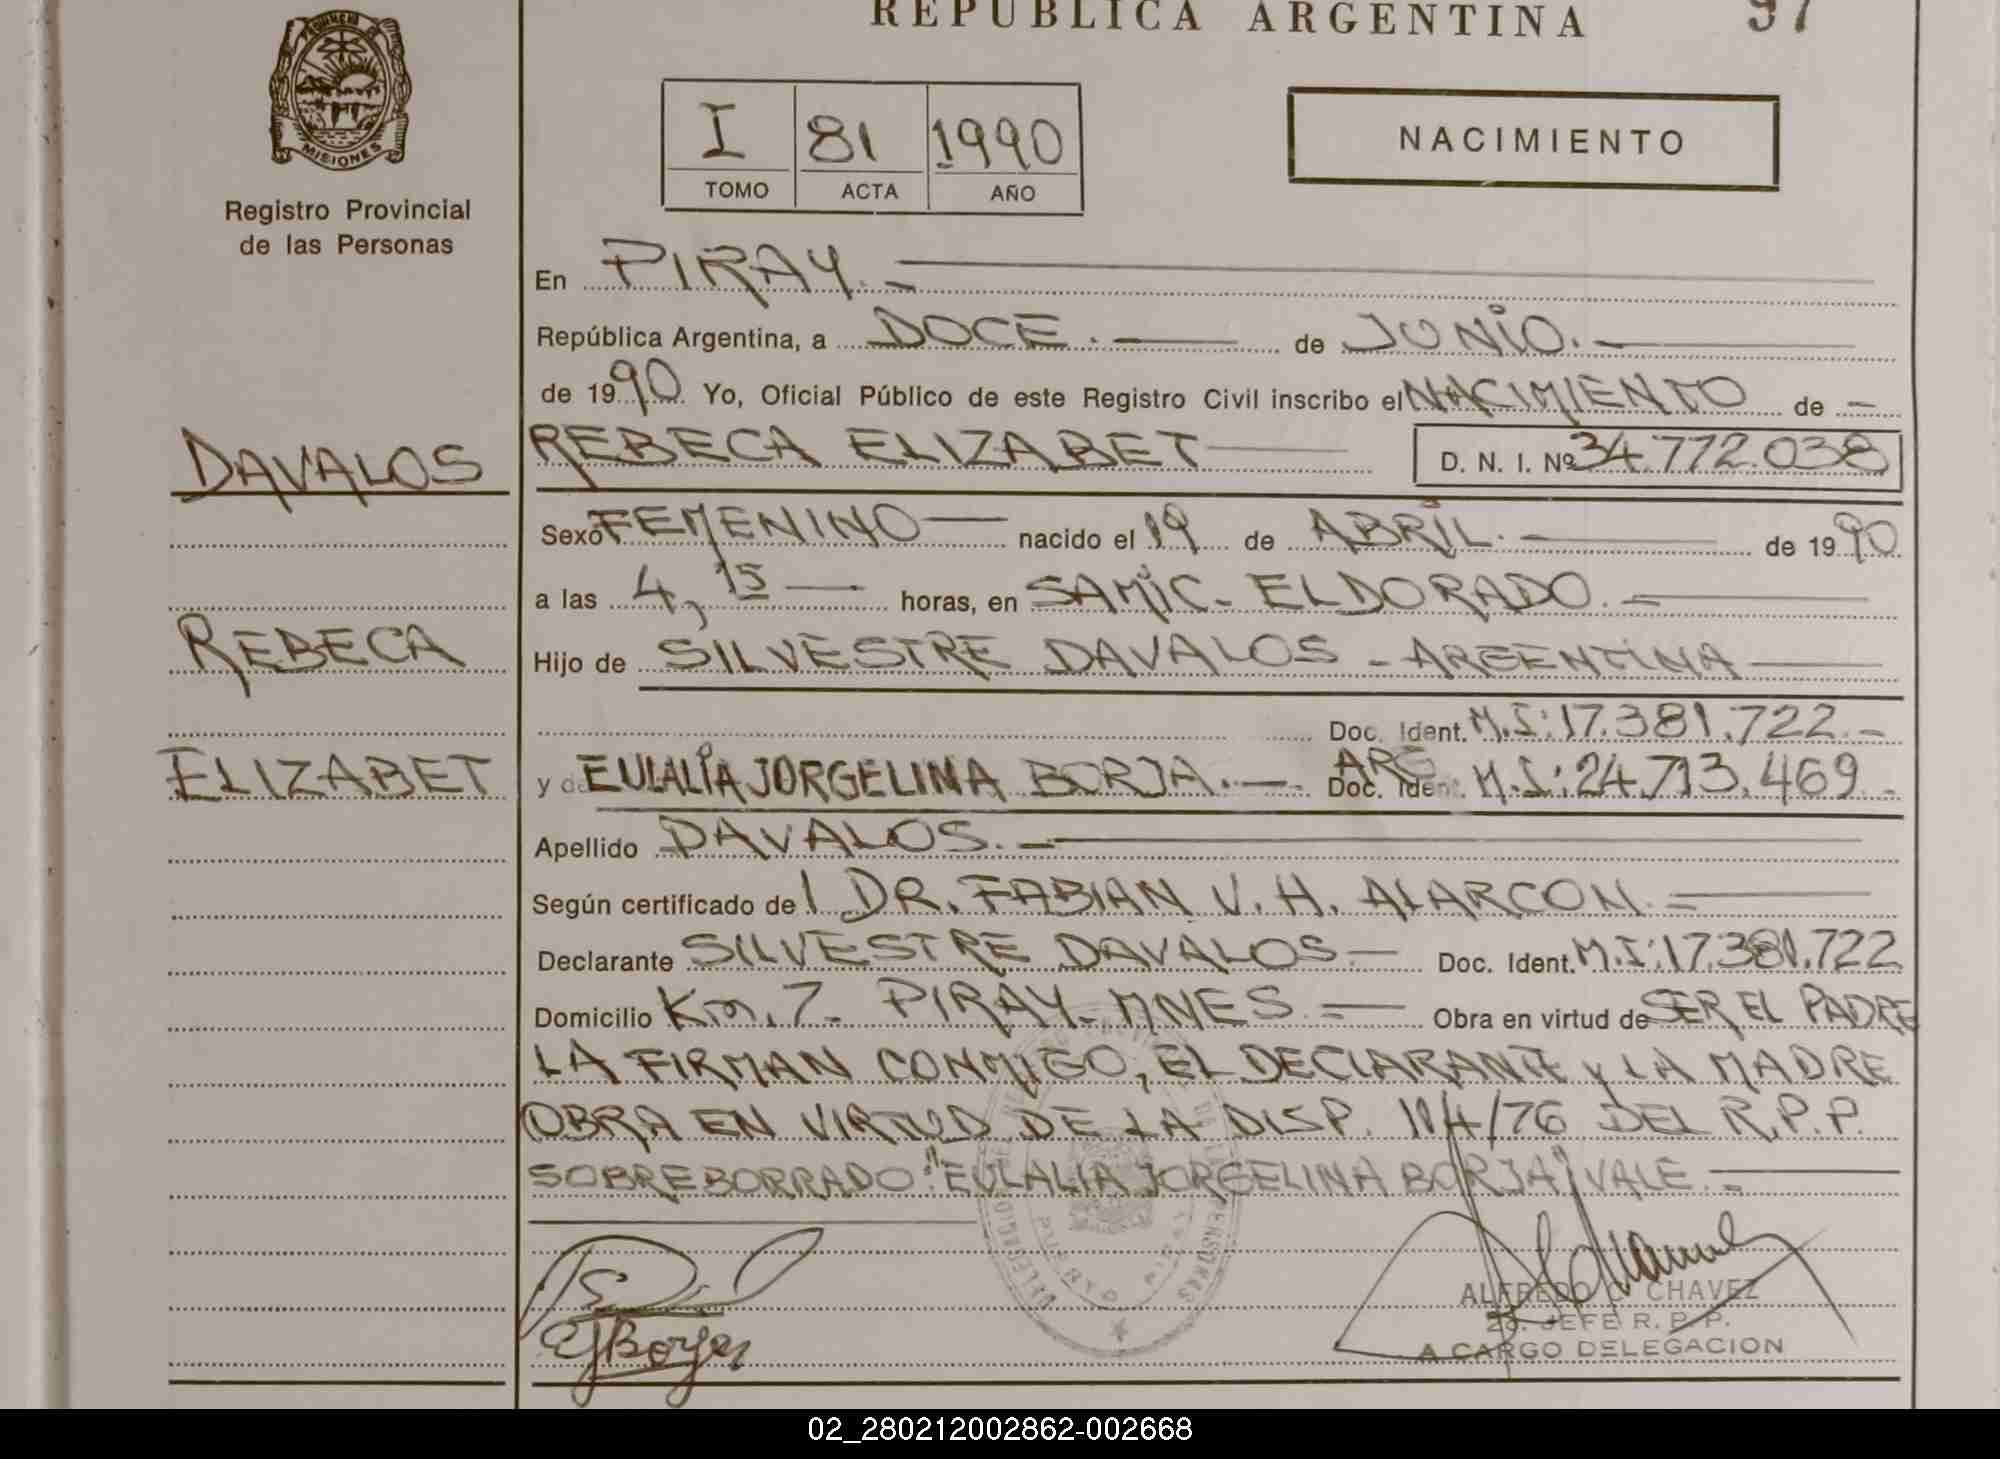 REPUBLICA ARGENTINA
97
MISIONES
Registro Provincial
de las Personas
I 81 1990
TOMO ACTA AÑO
NACIMIENTO
En PIRAY.-
República Argentina, a DOCE.- de JUNIO.-
de 1990 Yo, Oficial Público de este Registro Civil inscribo el NACIMIENTO de -
DAVALOS
REBECA ELIZABET D. N. I. Nº 34.772.038
Sexo FEMENINO- nacido el 19 de ABRIL.- de 1990
a las 4,15- horas, en SAMIC- ELDORADO.-
REBECA
Hijo de SILVESTRE DAVALOS - ARGENTINA-
Doc. Ident. M.I: 17.381.722.-
ELIZABET
y de EULALIA JORGELINA BORJA.- ARG Doc. Ident. M.I: 24.713.469.-
Apellido DAVALOS.-
Según certificado del DR. FABIAN V. H. ALARCON.-
Declarante SILVESTRE DAVALOS- Doc. Ident. M.I: 17.381.722
Domicilio Km. 7- PIRAY- MNES- Obra en virtud de SER EL PADRE
LA FIRMAN CONMIGO, EL DECLARANTE y LA MADRE
OBRA EN VIRTUD DE LA DISP. 114/76 DEL R.P.P.
SOBREBORRADO: "EULALIA JORGELINA BORJA" VALE.-
EJBorja
ALFREDO C. CHAVEZ
2o. JEFE R. P. P.
A CARGO DELEGACION
02_280212002862-002668